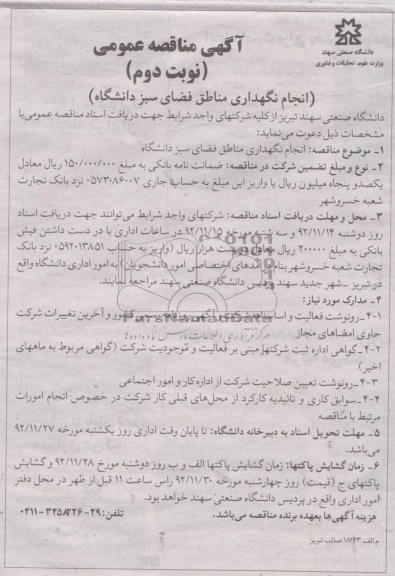 دانشگاه صنعتی سهند
وزارت علوم، تحقیقات و فناوری
آگهی مناقصه عمومی
(نوبت دوم)
(انجام نگهداری مناطق فضای سبز دانشگاه)
دانشگاه صنعتی سهند تبریز از کلیه شرکتهای واجد شرایط جهت دریافت اسناد مناقصه عمومی با
مشخصات ذیل دعوت می‌نماید:
۱- موضوع مناقصه: انجام نگهداری مناطق فضای سبز دانشگاه
۲- نوع و مبلغ تضمین شرکت در مناقصه: ضمانت نامه بانکی به مبلغ ۱۵۰/۰۰۰/۰۰۰ ریال معادل
یکصدو پنجاه میلیون ریال یا واریز این مبلغ به حساب جاری ۰۵۷۳۰۸۶۰۰۷ نزد بانک تجارت
شعبه خسروشهر
۳- محل و مهلت دریافت اسناد مناقصه: شرکتهای واجد شرایط می‌توانند جهت دریافت اسناد
روز دوشنبه ۹۲/۱۱/۱۴ و سه شنبه مورخه ۹۲/۱۱/۱۵ در ساعات اداری با در دست داشتن فیش
بانکی به مبلغ ۲۰۰۰۰۰ ریال معادل دویست هزار ریال (واریز به حساب ۰۵۹۲۰۱۳۸۵۱ نزد بانک
تجارت شعبه خسروشهر بنام درآمدهای اختصاصی امور دانشجویان) به امور اداری دانشگاه واقع
در تبریز - شهر جدید سهند پردیس دانشگاه صنعتی سهند مراجعه نمایند.
۴- مدارک مورد نیاز:
۴-۱- رونوشت فعالیت و اساسنامه شرکت و آخرین تغییرات شرکت
حاوی امضاهای مجاز
۴-۲- گواهی اداره ثبت شرکتها مبنی بر فعالیت و موجودیت شرکت (گواهی مربوط به ماههای
اخیر)
۴-۳- رونوشت تعیین صلاحیت شرکت از اداره کار و امور اجتماعی
۴-۴- سوابق کاری و تائیدیه کارکرد از محل‌های قبلی کار شرکت در خصوص انجام امورات
مرتبط با مناقصه
۵- مهلت تحویل اسناد به دبیرخانه دانشگاه: تا پایان وقت اداری روز یکشنبه مورخه ۹۲/۱۱/۲۷
می‌باشد.
۶- زمان گشایش پاکتها: زمان گشایش پاکتها الف و ب روز دوشنبه مورخ ۹۲/۱۱/۲۸ و گشایش
پاکتهای ج (قیمت) روز چهارشنبه مورخه ۹۲/۱۱/۳۰ راس ساعت ۱۱ قبل از ظهر در محل دفتر
امور اداری واقع در پردیس دانشگاه صنعتی سهند خواهد بود.
هزینه آگهی‌ها بعهده برنده مناقصه می‌باشد.
تلفن: ۲۹-۳۴۵۸۲۲۶-۰۴۱۱
م الف ۱۸۲۶۳ صائب تبریز